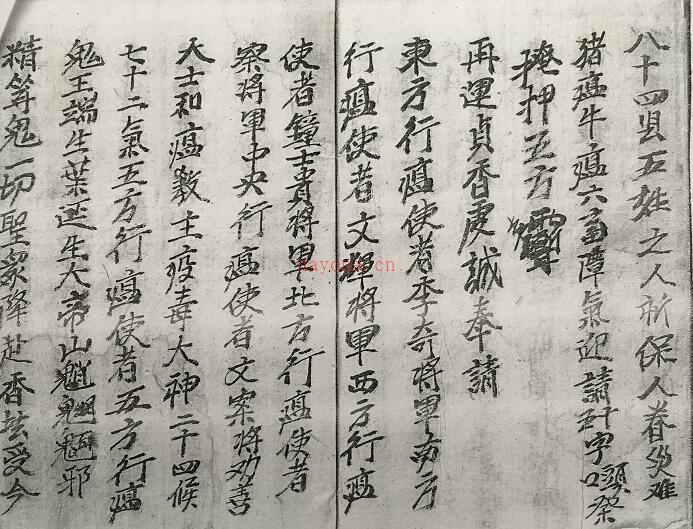 八十四县五姓之人祈保人眷災难
猪瘟牛瘟六畜障氣迎請刊字口喉祭
押五方
再運貞香虔誠奉請
東方行瘟使者李奇將軍南方
行瘟使者文輝將軍西方行瘟
使者鐘士貴將軍北方行瘟使者
察將軍中央行瘟使者文案將劝善
大士和瘟教主疫毒大神二十四候
七十二氣五方行瘟使者五方行瘟
鬼王端生葉迁生人帝山魈邪
精等鬼一切聖眾降赴香筵受今
nayona.cn